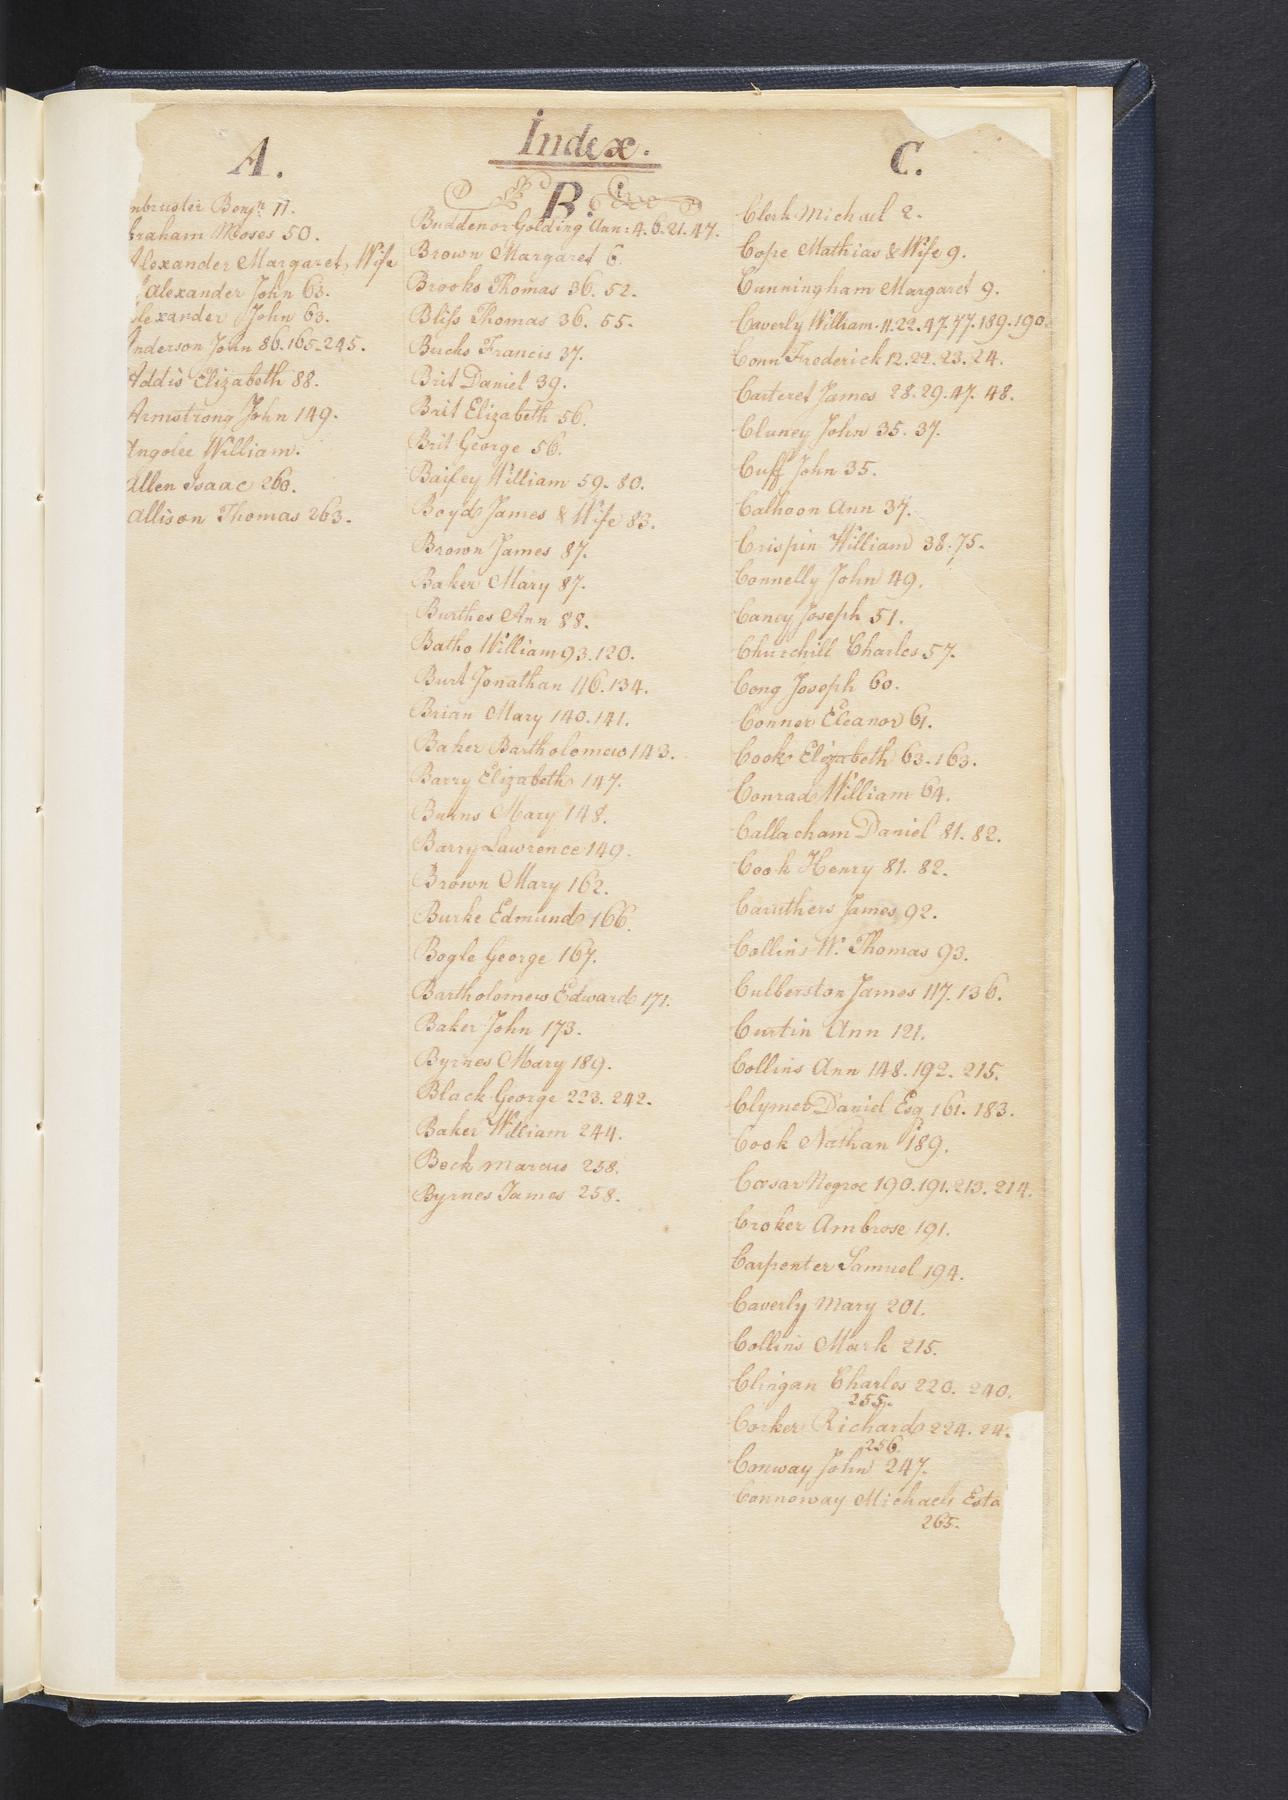 Index.
A.
nbruster Benjn. 11.
braham Moses 50.
Alexander Margaret, Wife
Alexander John 63.
alexander John 63.
Anderson John 86.165.245.
Addis Elizabeth 88.
Armstrong John 149.
Angolee William.
Allen Isaac 260.
Allison Thomas 263.
B.
Buddenor Golding Ann: 4.6.21.47.
Brown Margaret 6.
Brooks Thomas 36. 52.
Bliss Thomas 36. 55.
Bucks Francis 37.
Brit Daniel 39.
Brit Elizabeth 56.
Brit George 56.
Baifey William 59. 80.
Boyd James & Wife 83.
Brown James 87.
Baker Mary 87.
Burthes Ann 88.
Batho William 93.120.
Burt Jonathan 116.134.
Brian Mary 140.141.
Baker Bartholomew 143.
Barry Elizabeth 147.
Burns Mary 148.
Barry Lawrence 149.
Brown Mary 162.
Burke Edmund 166.
Bogle George 167.
Bartholomew Edward 171.
Baker John 173.
Byrnes Mary 189.
Black George 223. 242.
Baker William 244.
Beck Marcus 258.
Byrnes James 258.
C.
Clerk Michael 2.
Cope Mathias & Wife 9.
Cunningham Margaret 9.
Caverly William. 11.22.47.77.189.190.
Conn Frederick 12.22.23.24.
Carteret James 28.29.47.48.
Cluney John 35. 37.
Cuff John 35.
Calhoon Ann 37.
Crispin William 38.75.
Connelly John 49.
Caney Joseph 51.
Churchill Charles 57.
Cong Joseph 60.
Conner Eleanor 61.
Cook Elizabeth 63.163.
Conrad William 64.
Callacham Daniel 81. 82.
Cook Henry 81. 82.
Caruthers James 92.
Collins W. Thomas 93.
Culberston James 117. 136.
Curtin Ann 121.
Collins Ann 148.192. 215.
Clymer Daniel Esq 161. 183.
Cook Nathan 189.
Cæsar Negroe 190.191.213.214.
Croker Ambrose 191.
Carpenter Samuel 194.
Caverly Mary 201.
Collins Mark 215.
Clingan Charles 220. 240.
255.
Corker Richard 224. 24
256.
Conway John 247.
Connoway Michaels Esta
265.